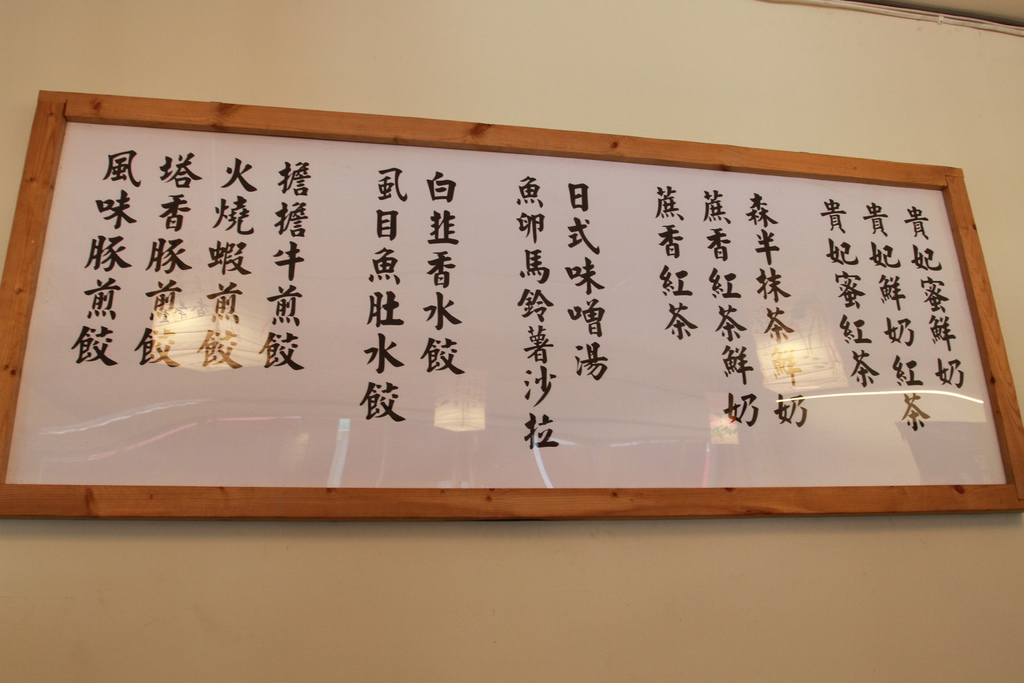 貴妃蜜鮮奶
貴妃鮮奶紅茶
貴妃蜜紅茶
森半抹茶鮮奶
蔗香紅茶鮮奶
蔗香紅茶
日式味噌湯
魚卵馬鈴薯沙拉
白韭香水餃
虱目魚肚水餃
擔擔牛煎餃
火燒蝦煎餃
塔香豚煎餃
風味豚煎餃